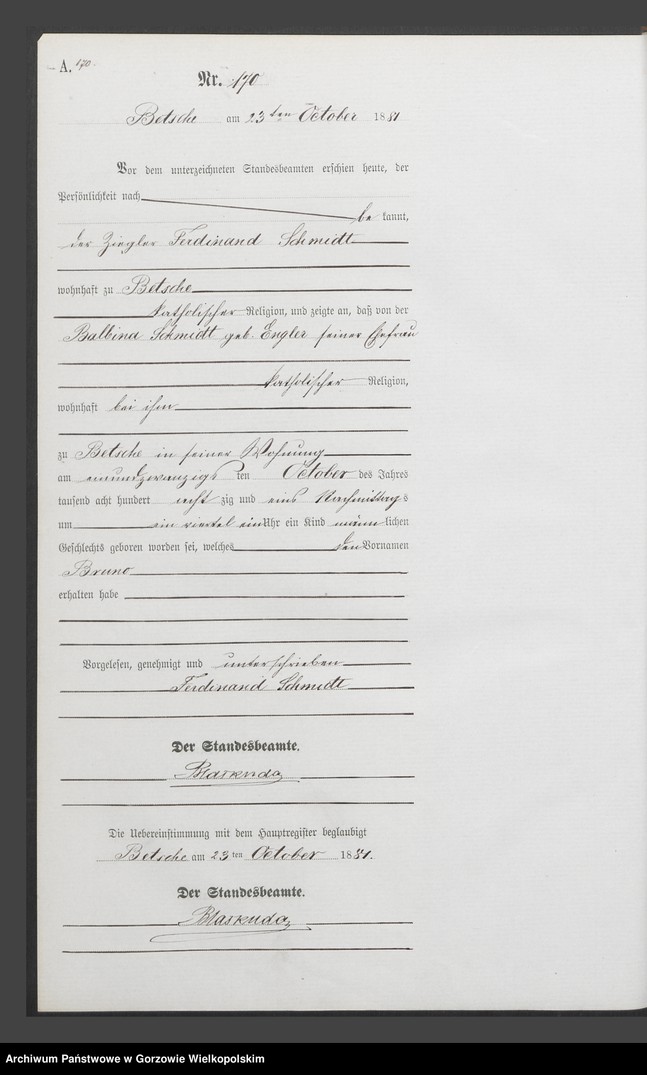 A. 170.
Nr. 170
Betsche am 23ten October 1881
Vor dem unterzeichneten Standesbeamten erschien heute, der
Persönlichkeit nach
be kannt,
der Ziegler Ferdinand Schmidt
wohnhaft zu Betsche
katholischer Religion, und zeigte an, daß von der
Balbina Schmidt geb. Engler seiner Ehefrau
katholischer Religion,
wohnhaft bei ihm
zu Betsche in seiner Wohnung
am einundzwanzigsten October des Jahres
tausend acht hundert acht zig und eins Nachmittags
um ein viertel ein Uhr ein Kind männlichen
Geschlechts geboren worden sei, welches den Vornamen
Bruno
erhalten habe
Vorgelesen, genehmigt und unterschrieben
Ferdinand Schmidt
Der Standesbeamte.
Blaskuda
Die Uebereinstimmung mit dem Hauptregister beglaubigt
Betsche am 23 ten October 1881.
Der Standesbeamte.
Blaskuda
Archiwum Państwowe w Gorzowie Wielkopolskim